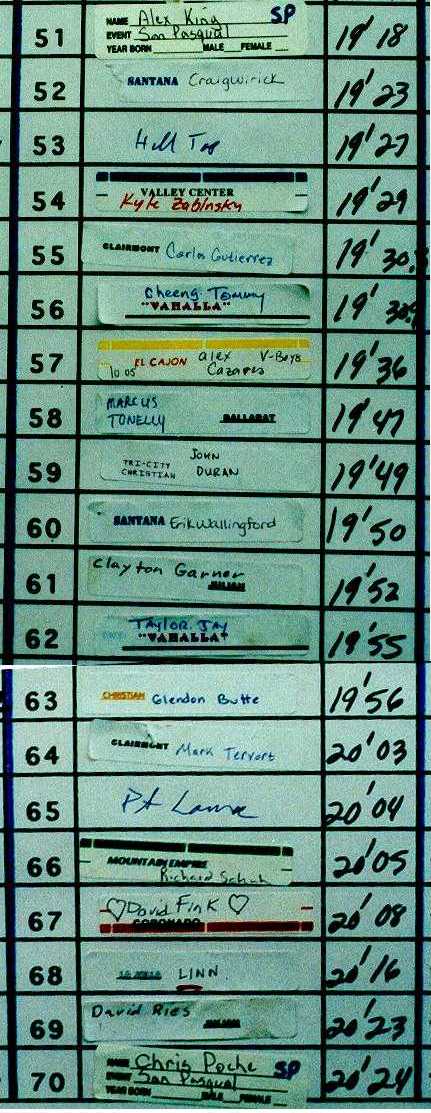 51 NAME Alex King SP 19'18
EVENT San Pasqual
YEAR BORN MALE FEMALE
52 SANTANA Craig Wirick 19'23
53 Hill Top 19'27
54 VALLEY CENTER 19'29
Kyle Zabinsky
55 CLAIRMONT Carlos Gutierrez 19'30.3
56 Cheeng Tommy 19'30.9
"VAHALLA"
57 EL CAJON alex V-Boys 19'36
10.05 Cazares
58 MARCUS 19'47
TONELLY BALLARAT
59 JOHN 19'49
TRI-CITY CHRISTIAN DURAN
60 SANTANA Erik Wallingford 19'50
61 Clayton Garner 19'52
JULIAN
62 TAYLOR JAY 19'55
"VAHALLA"
63 CHRISTIAN Glendon Butte 19'56
64 CLAIRMONT Mark Tervort 20'03
65 Pt Loma 20'04
66 MOUNTAIN EMPIRE 20'05
Richard
67 ♡David Fink♡ 20'08
CORONADO
68 LINN 20'16
69 David Ries 20'23
70 NAME Chris Poche SP 20'24
EVENT San Pasqual
YEAR BORN MALE FEMALE